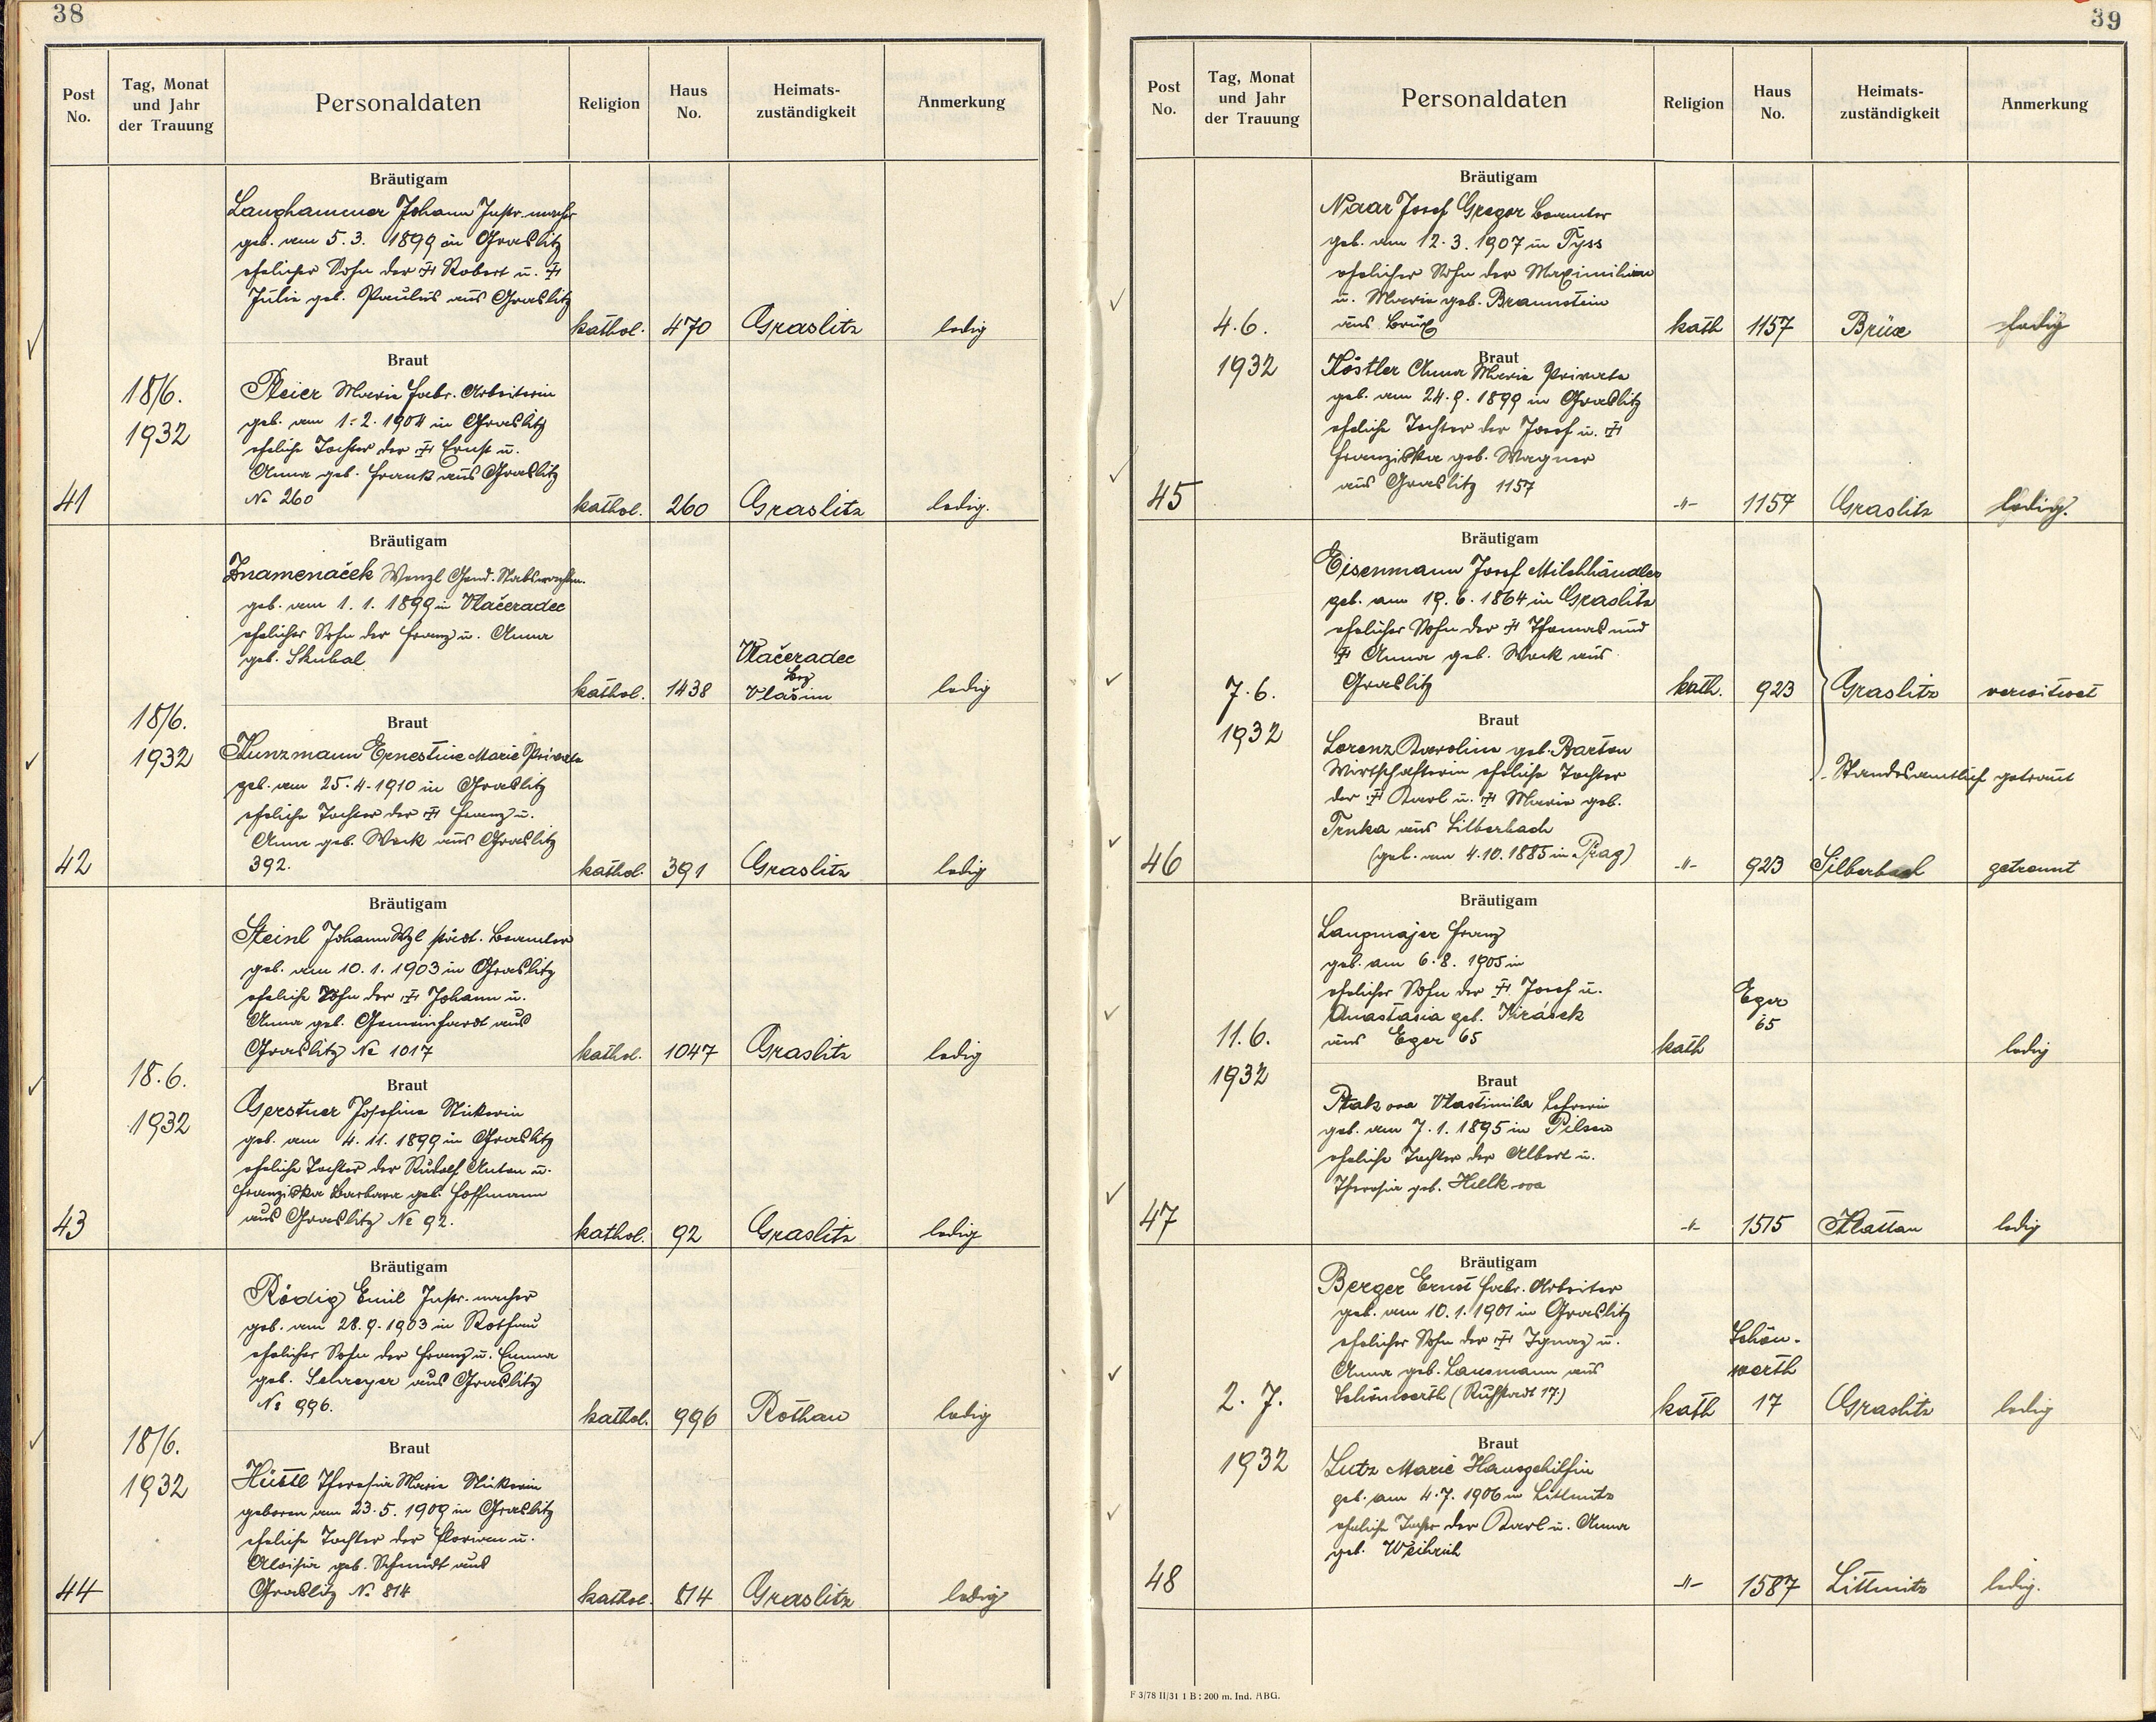 38
Post No.
Tag, Monat und Jahr der Trauung
Personaldaten
Religion
Haus No.
Heimats-zuständigkeit
Anmerkung
Bräutigam
Langhammer Johann Instr. macher
geb. am 5.3. 1899 in Graslitz
ehelicher Sohn der Robert u.
Julie geb. Paulus aus Graslitz
kathol. 470 Graslitz ledig
Braut
18/6.
1932
Marie Fabr. Arbeiterin
geb. am 1.2. 1904 in Graslitz
eheliche Tochter der Ernst u.
Anna geb. Frank aus Graslitz
№ 260
41
kathol. 260 Graslitz ledig.
Bräutigam
Znamenáček Wenzl Gend. Stabswachtm.
geb. am 1. 1. 1899 in Vlačeradec
ehelicher Sohn der Franz u. Anna
geb. Skubal
kathol. 1438 Vlačeradec
Bez
Vlašim
ledig
18/6.
1932
Braut
Kunzmann Ernestine Marie Private
geb. am 25.4.1910 in Graslitz
eheliche Tochter der Franz u.
Anna geb. Weck aus Graslitz
392.
42
kathol. 391 Graslitz ledig
Bräutigam
Steinl Johann Wzl städt. Beamter
geb. am 10. 1. 1903 in Graslitz
eheliche Sohn der Johann u.
Anna geb. Gemeinhardt aus
Graslitz № 1017
kathol. 1047 Graslitz ledig
18.6.
1932
Braut
Gerstner Josefine Stickerin
geb. am 4. 11. 1899 in Graslitz
eheliche Tochter der Rudolf Anton u.
Franziska Barbara geb. Hoffmann
aus Graslitz № 92.
43
kathol. 92 Graslitz ledig
Bräutigam
Rödig Emil Instr. macher
geb. am 28.9.1903 in Rothau
ehelicher Sohn der Franz u. Emma
geb. Schreyer aus Graslitz
№ 996.
kathol. 996 Rothau ledig
18/6.
1932
Braut
Hüttl Theresia Marie Stickerin
geboren am 23.5. 1909 in Graslitz
eheliche Tochter der Florian u.
Aloisia geb. Schmidt aus
Graslitz № 814
44
kathol. 814 Graslitz ledig
39
Post No.
Tag, Monat und Jahr der Trauung
Personaldaten
Religion
Haus No.
Heimats-zuständigkeit
Anmerkung
Bräutigam
Naar Josef Gregor Beamter
geb. am 12.3. 1907 in Tyss
ehelicher Sohn der Maximilian
u. Marie geb. Braunstein
aus Brüx
4.6.
1932
kath 1157 Brüx ledig
Braut
Köstler Anna Marie Private
geb. am 24.9. 1899 in Graslitz
eheliche Tochter der Josef u.
Franziska geb. Wagner
aus Graslitz 1157
45
-"- 1157 Graslitz ledig.
Bräutigam
Eisenmann Josef Milchhändler
geb. am 19.6. 1864 in Graslitz
ehelicher Sohn der Thomas und
Anna geb. Weck aus
Graslitz
7.6.
1932
kath. 923 Graslitz verwitwet
Braut
Lorenz Karoline geb. Barton
Wirtschafterin eheliche Tochter
der Karl u. Marie geb.
Trnka aus Silberbach
(geb. am 4.10. 1885 in Prag)
Standesamtlich getraut
46
-"- 923 Silberbach getrennt
Bräutigam
Langmajer Franz
geb. am 6.8. 1905 in
ehelicher Sohn der Josef u.
Anastasia geb. Jirásek
aus Eger 65
11.6.
1932
kath
Eger
65
ledig
Braut
Vlastimila Lehrerin
geb. am 7. 1. 1895 in Pilsen
eheliche Tochter der Albert u.
Theresia geb.
47
-"- 1515 Klattau ledig
Bräutigam
Berger Ernst Fabr. Arbeiter
geb. am 10. 1. 1901 in Graslitz
ehelicher Sohn der Ignaz u.
Anna geb. Langmann aus
Schönwerth (Ruhstadt 17.)
2. 7.
1932
kath
Schön-
werth
17
Graslitz ledig
Braut
Lutz Marie Hausgehilfin
geb. am 4.7. 1906 in Littmitz
eheliche Tochter der Karl u. Anna
geb. Weihrich
48
-"- 1587 Littmitz ledig.
F 3/78 II/31 1 B : 200 m. Ind. ABG.